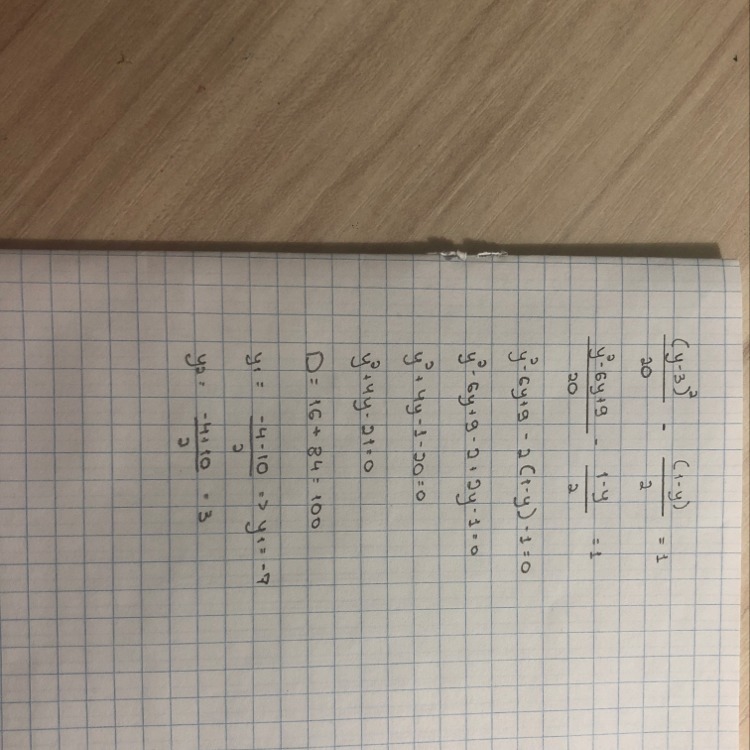 (y-3)²/20 - (1-y)/2 = 1
y²-6y+9/20 - 1-y/2 = 1
y²-6y+9 - 2(1-y) - 1 = 0
y²-6y+9-2+2y-1=0
y²+4y-1-20=0
y²+4y-21=0
D = 16 + 84 = 100
y₁ = -4-10/2 => y₁ = -7
y₂ = -4+10/2 = 3